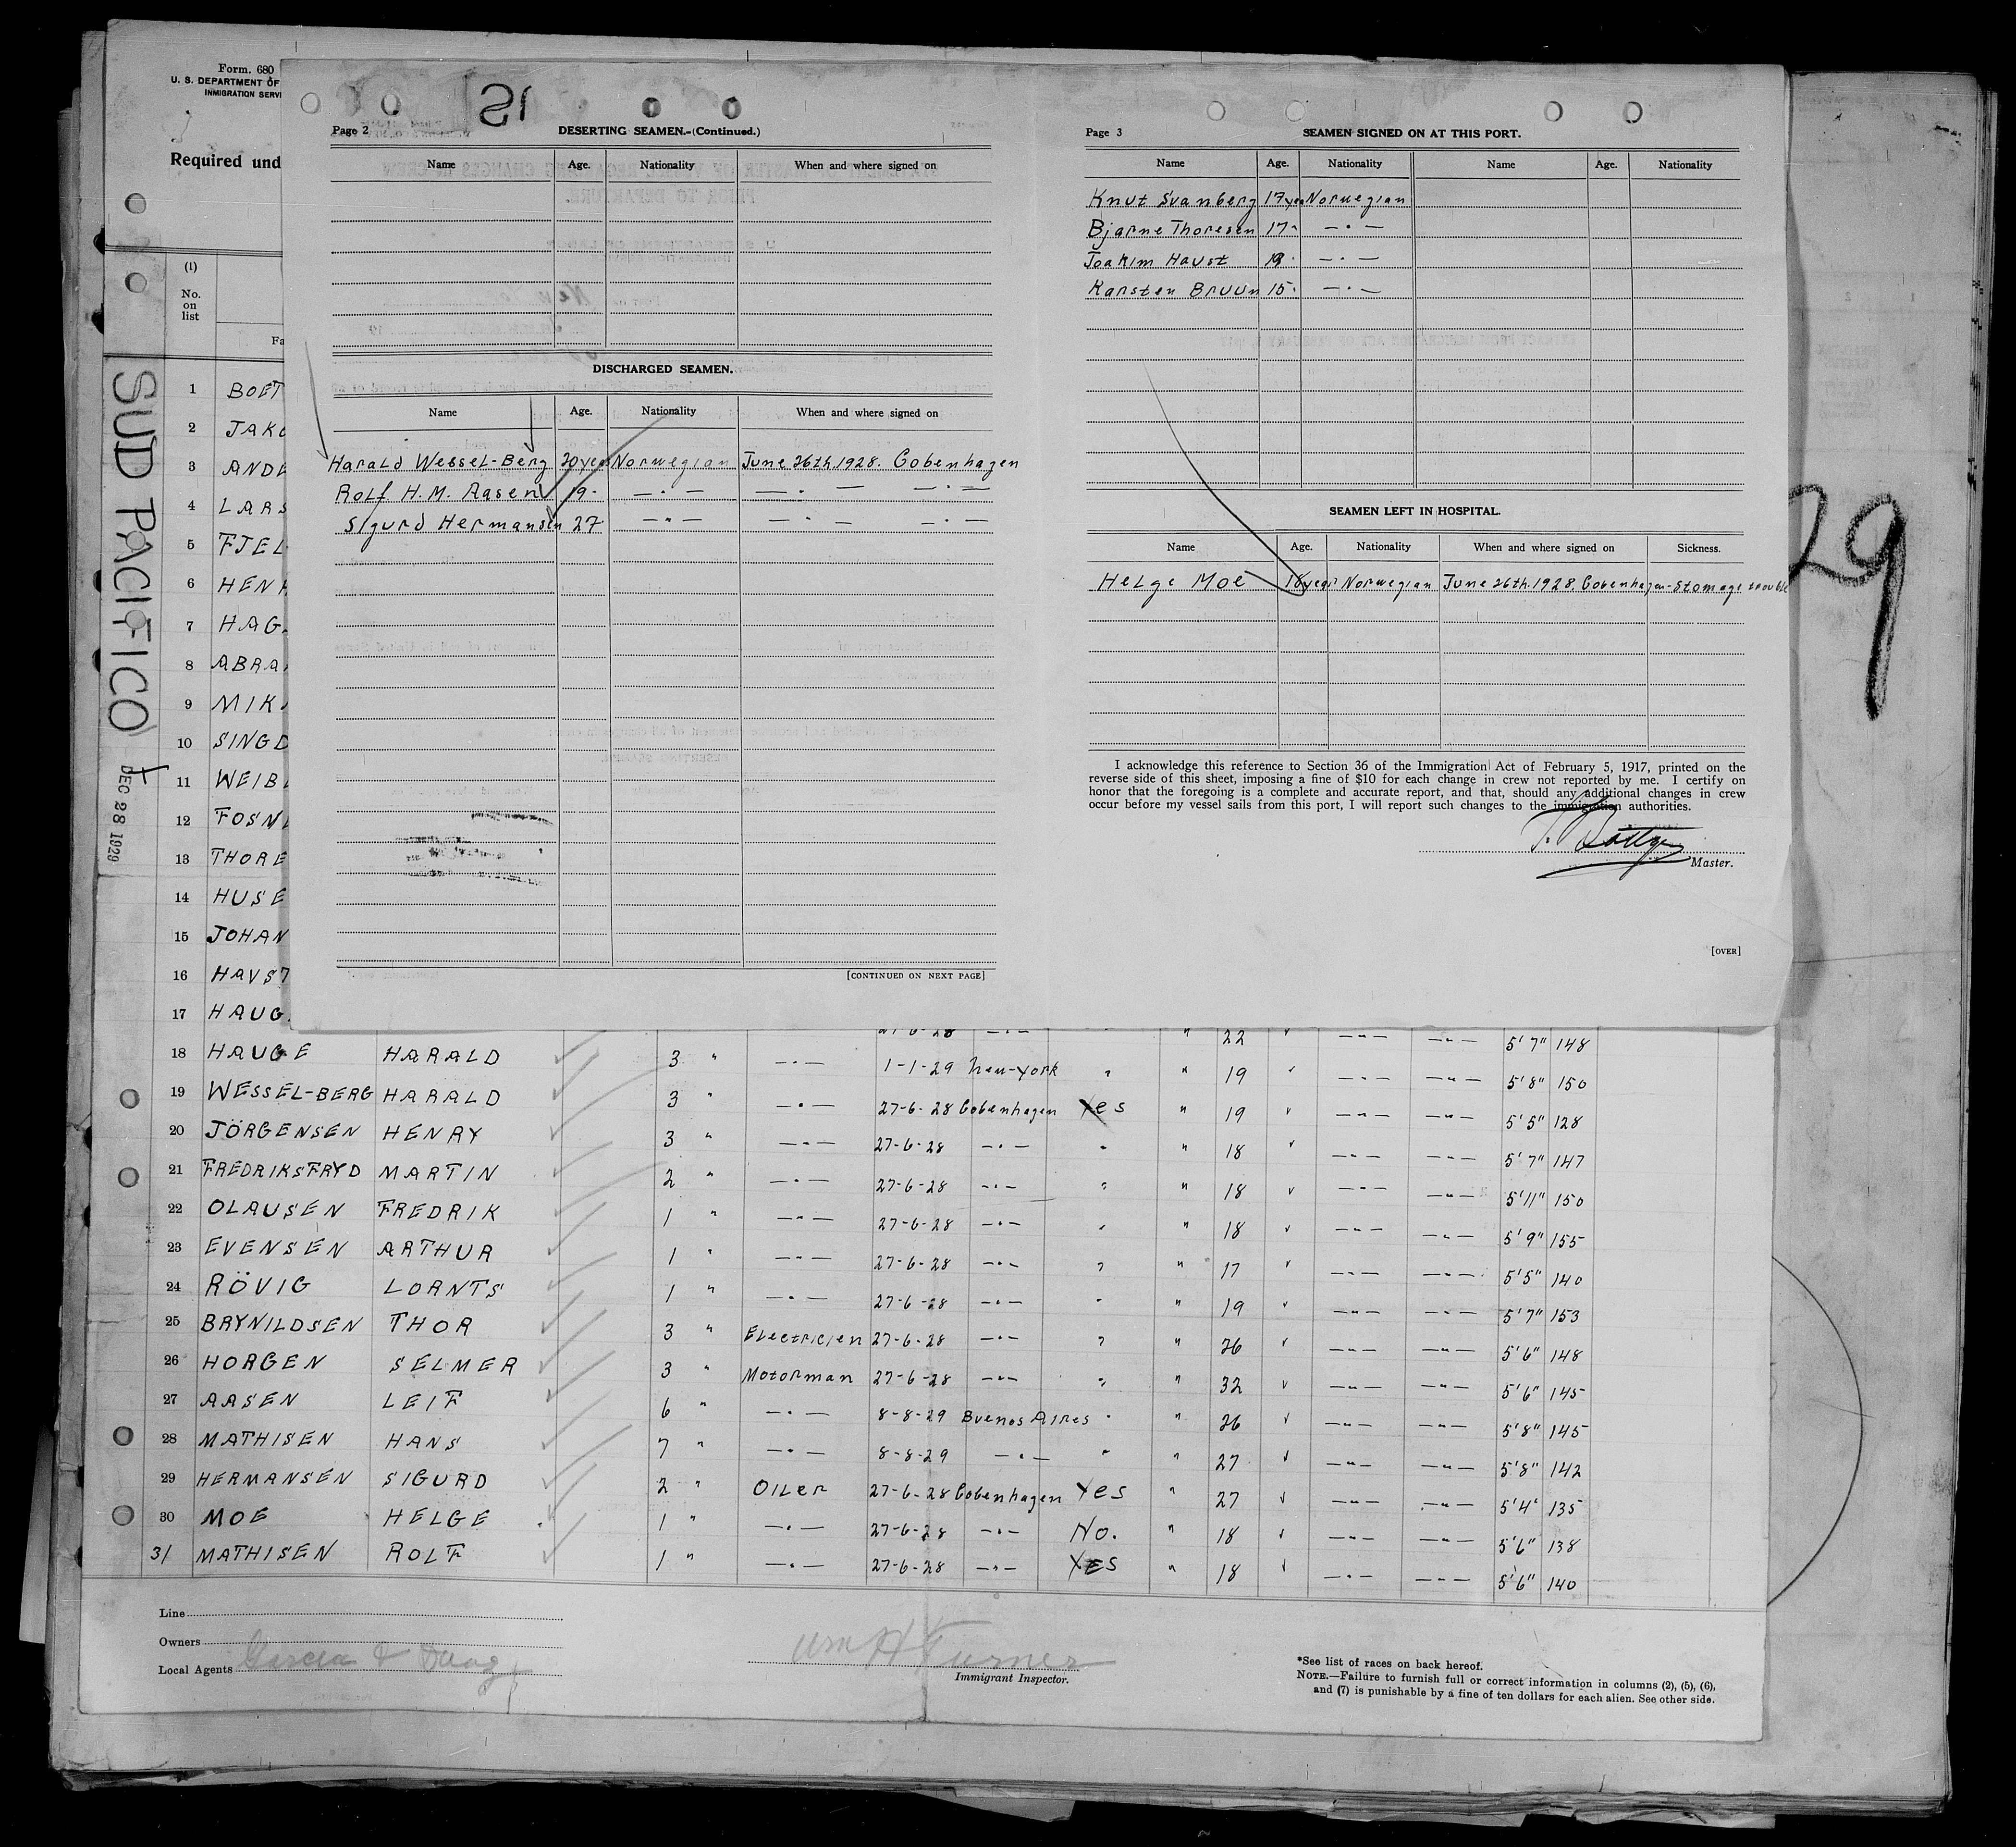 Form. 680
U. S. DEPARTMENT OF
INMIGRATION SERVI
Required und
(1)
No.
on
list
Fa
SUD PACIFICO
DEC 28 1929
1 BOET
2 JAKO
3 ANDE
4 LARS
5 FJEL
6 HEN
7 HAG
8 ABRA
9 MIK
10 SING
11 WEIB
12 FOSN
13 THORE
14 HUSE
15 JOHAN
16 HAVST
17 HAUG
21
Page 2 DESERTING SEAMEN.-(Continued.)
Name Age. Nationality When and where signed on
DISCHARGED SEAMEN.
Name Age. Nationality When and where signed on
Harald Wessel-Berg 20 years Norwegian June 26th.1928. Cobenhagen
Rolf H.M. Aasen 19 " —"— —"— —"—
Sigurd Hermansen 27 —"— —"— —"—
[CONTINUED ON NEXT PAGE]
Page 3 SEAMEN SIGNED ON AT THIS PORT.
Name Age. Nationality Name Age. Nationality
Knut Svanberg 17 year Norwegian
Bjarne Thoresen 17 " —"—
Joakim Haust —"—
Karsten Bruun 15 " —"—
SEAMEN LEFT IN HOSPITAL.
Name Age. Nationality When and where signed on Sickness.
Helge Moe 18 years Norwegian June 26th.1928. Cobenhagen- Stomage trouble
I acknowledge this reference to Section 36 of the Immigration Act of February 5, 1917, printed on the
reverse side of this sheet, imposing a fine of $10 for each change in crew not reported by me. I certify on
honor that the foregoing is a complete and accurate report, and that, should any additional changes in crew
occur before my vessel sails from this port, I will report such changes to the immigration authorities.
Master.
[OVER]
29
27-6-28 —"— " " 22 " —"— —"— 5'7" 148
18 HAUGE HARALD 3 " —"— 1-1-29 New-York " " 19 " —"— —"— 5'8" 150
19 WESSEL-BERG HARALD 3 " —"— 27-6-28 Cobenhagen Yes " 19 " —"— —"— 5'5" 128
20 JÖRGENSEN HENRY 3 " —"— 27-6-28 —"— " " 18 " —"— —"— 5'7" 147
21 FREDRIKSFRYD MARTIN 2 " —"— 27-6-28 —"— " " 18 " —"— —"— 5'11" 150
22 OLAUSEN FREDRIK 1 " —"— 27-6-28 —"— " " 18 " —"— —"— 5'9" 155
23 EVENSEN ARTHUR 1 " —"— 27-6-28 —"— " " 17 " —"— —"— 5'5" 140
24 RÖVIG LORNTS 1 " —"— 27-6-28 —"— " " 19 " —"— —"— 5'7" 153
25 BRYNILDSEN THOR 3 " Electricien 27-6-28 —"— " " 26 " —"— —"— 5'6" 148
26 HORGEN SELMER 3 " Motorman 27-6-28 —"— " " 32 " —"— —"— 5'6" 145
27 AASEN LEIF 6 " —"— 8-8-29 Buenos Aires " " 26 " —"— —"— 5'8" 145
28 MATHISEN HANS 7 " —"— 8-8-29 —"— " " 27 " —"— —"— 5'8" 142
29 HERMANSEN SIGURD 2 " Oiler 27-6-28 Cobenhagen Yes " 27 " —"— —"— 5'4" 135
30 MOE HELGE 1 " —"— 27-6-28 —"— No. " 18 " —"— —"— 5'6" 138
31 MATHISEN ROLF 1 " —"— 27-6-28 —"— Yes " 18 " —"— —"— 5'6" 140
Line
Owners
Local Agents Garcia &
Wm H Turner
Immigrant Inspector.
*See list of races on back hereof.
NOTE.—Failure to furnish full or correct information in columns (2), (5), (6),
and (7) is punishable by a fine of ten dollars for each alien. See other side.